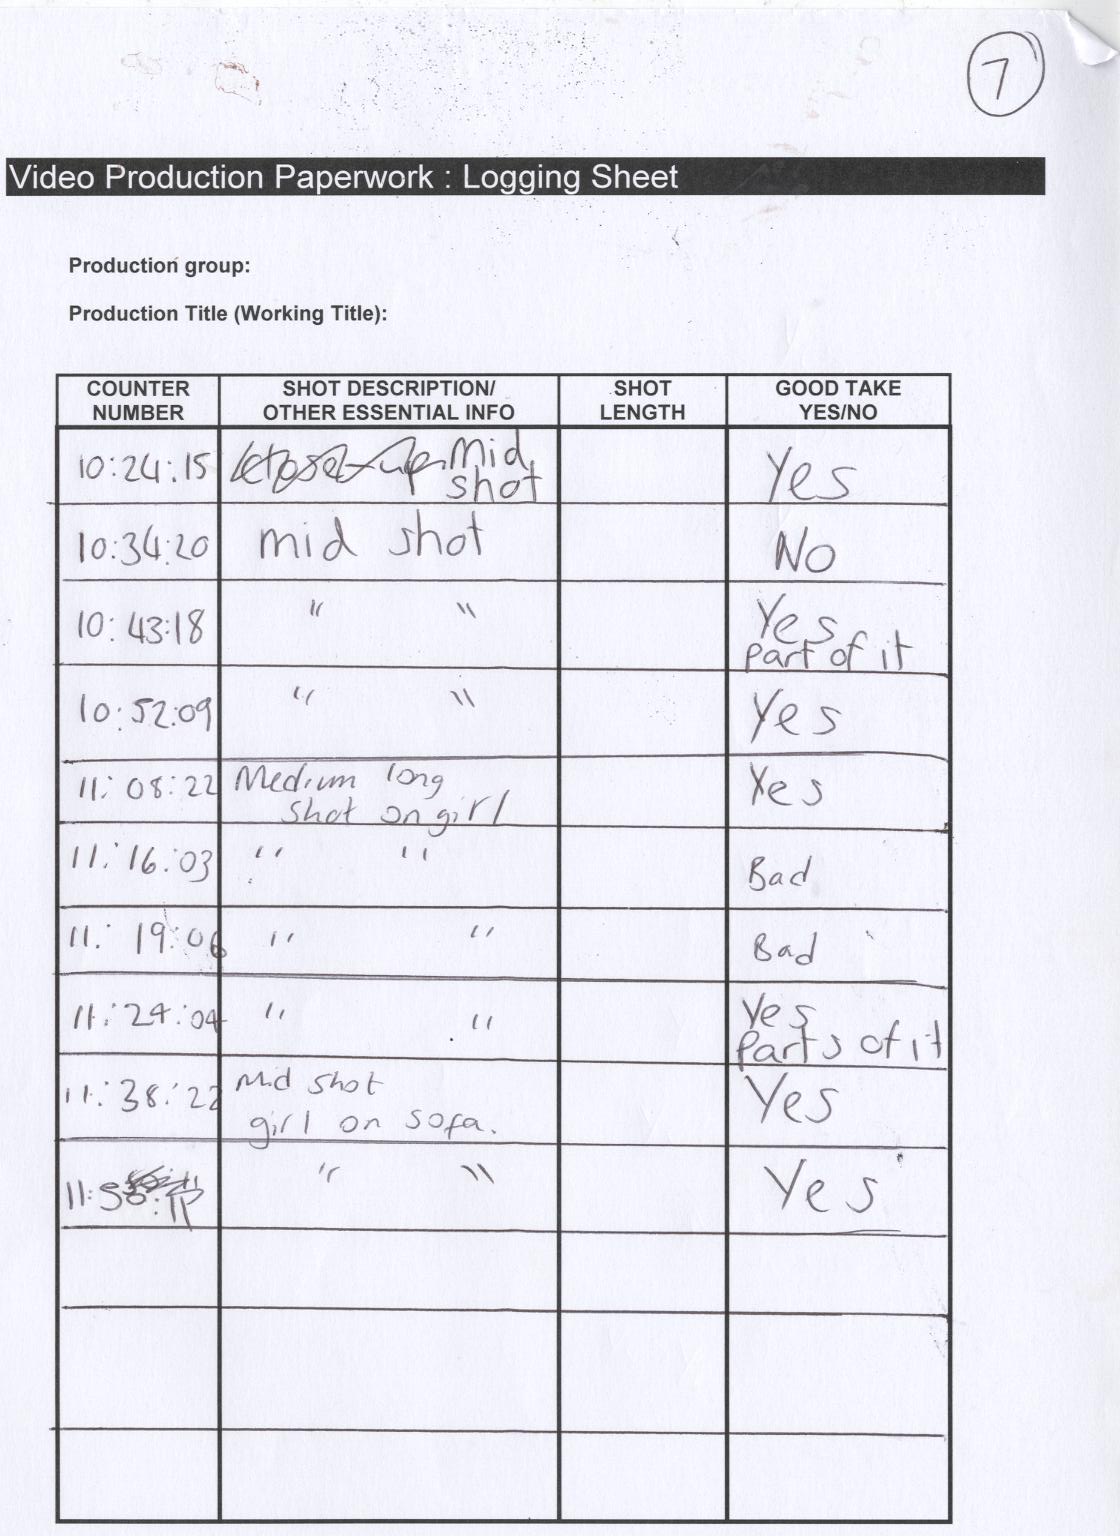 7
Video Production Paperwork : Logging Sheet
Production group:
Production Title (Working Title):
COUNTER NUMBER SHOT DESCRIPTION/ OTHER ESSENTIAL INFO SHOT LENGTH GOOD TAKE YES/NO
10:24:15 Mid shot Yes
10:34:20 mid shot No
10:43:18 " " Yes part of it
10:52:09 " " Yes
11:08:22 Medium long shot on girl Yes
11:16:03 " " Bad
11:19:06 " " Bad
11:24:04 " " Yes parts of it
11:38:22 Mid shot girl on sofa. Yes
" " Yes